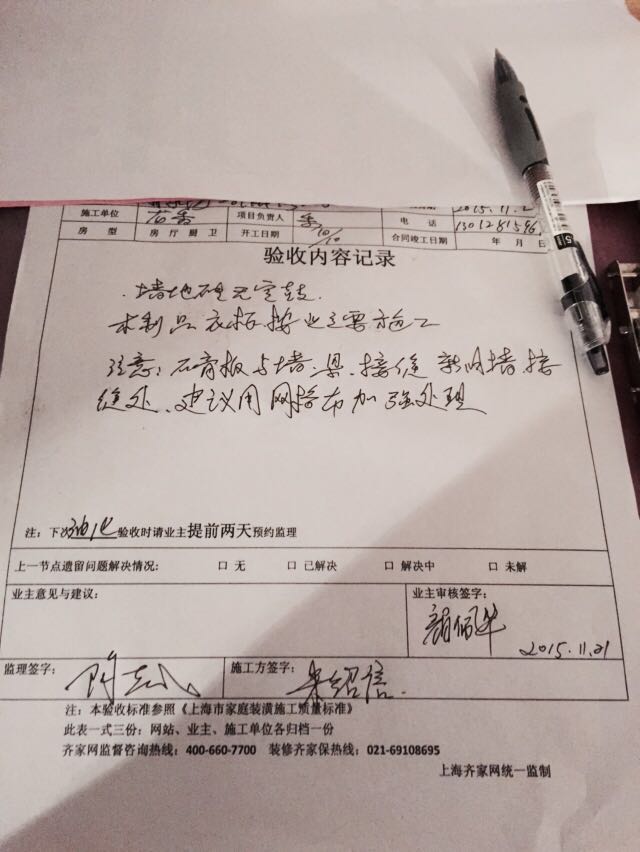 施工单位 项目负责人 电 话
房 型 房 厅 厨 卫 开工日期 10/10 合同竣工日期 年 月 日
验收内容记录
墙地砖无空鼓.
木制品衣柜按业主要施工
注意：石膏板与墙、梁、接缝 新旧墙接
缝处、建议用网格布加强处理
注：下次油化验收时请业主提前两天预约监理
上一节点遗留问题解决情况: □ 无 □ 已解决 □ 解决中 □ 未解
业主意见与建议: 业主审核签字:
2015.11.21
监理签字: 施工方签字: 朱绍信.
注：本验收标准参照《上海市家庭装潢施工质量标准》
此表一式三份：网站、业主、施工单位各归档一份
齐家网监督咨询热线：400-660-7700 装修齐家保热线：021-69108695
上海齐家网统一监制